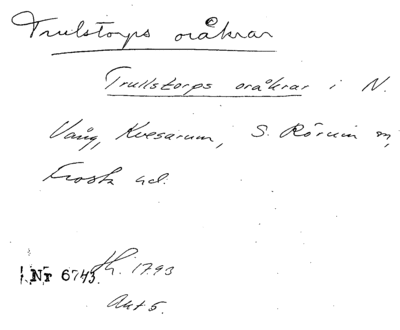 Trulstorps oråkrar
Trulstorps oråkrar i N.
Vång, Kvesarum, S. Rörum m,
Frosta hd.
Nr 6743. H. 1793
Akt 5.